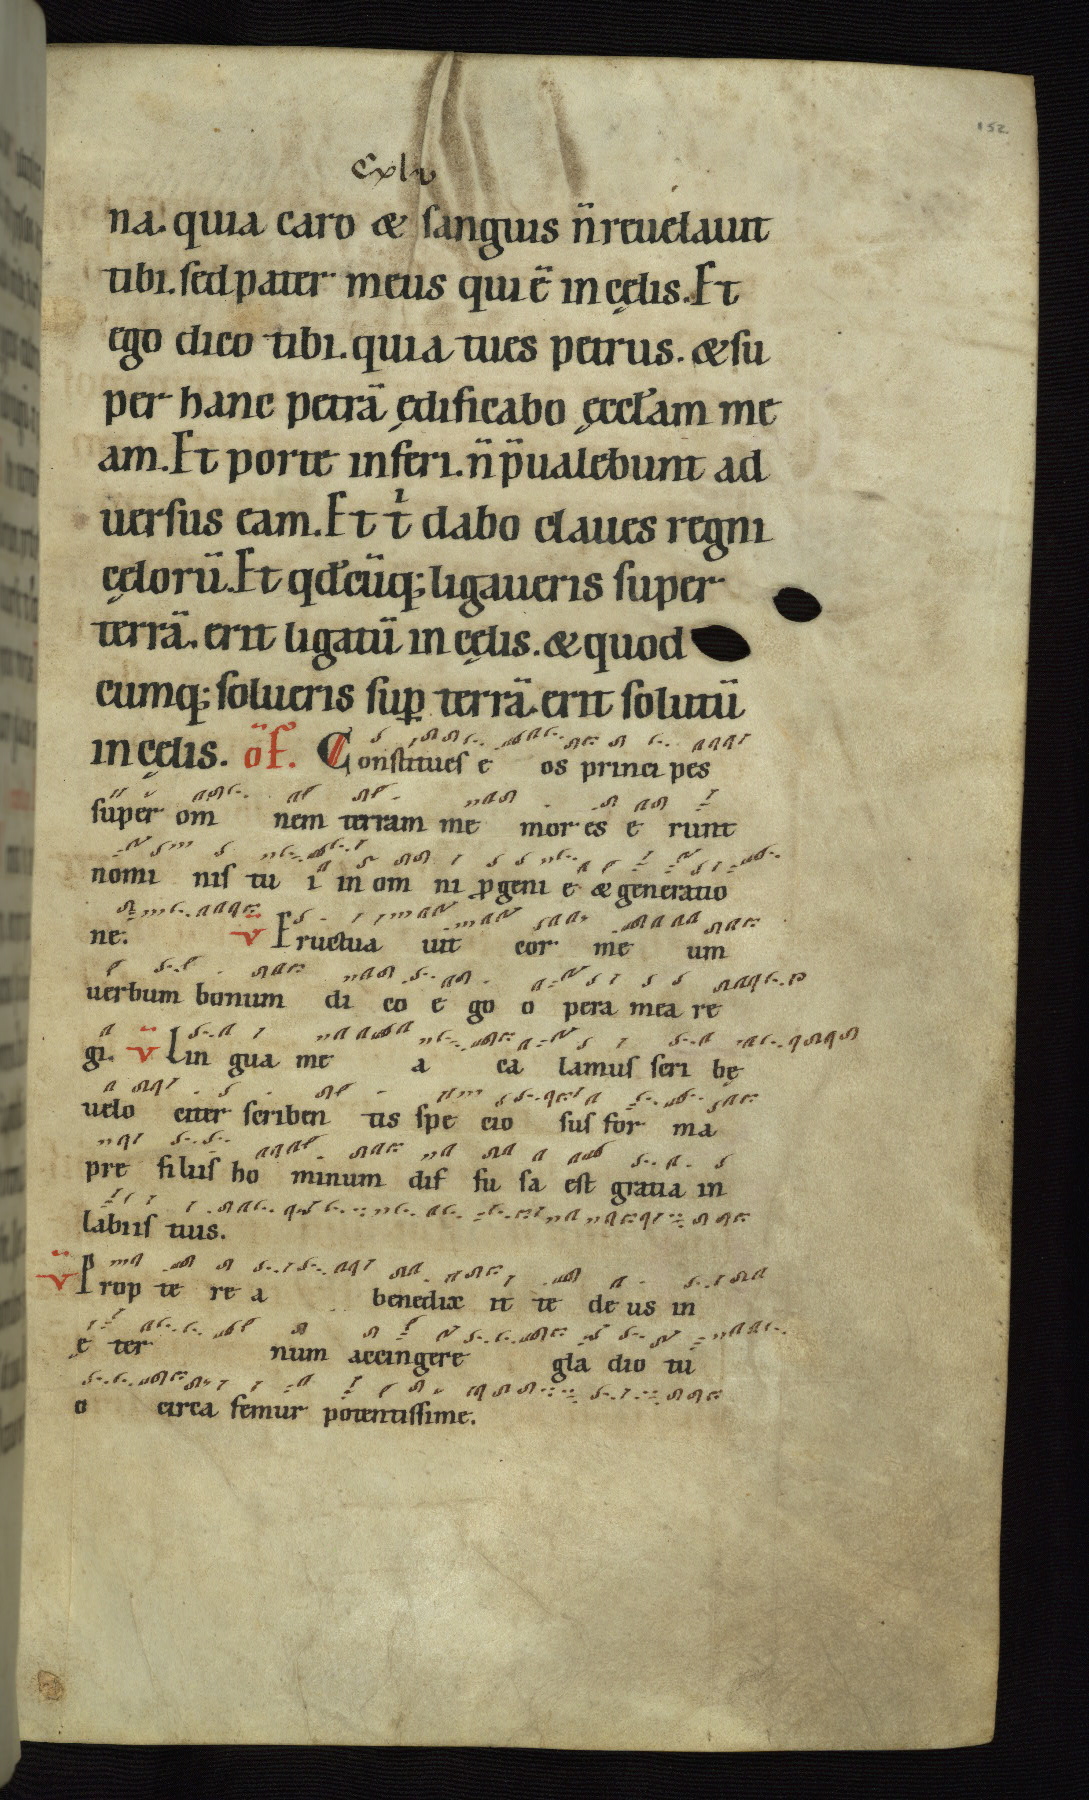 152
cxlv
na. quia caro & sanguis n̄ reuelauit
tibi. sed pater meus qui ē in cęlis. Et
ego dico tibi. quia tu es petrus. & su
per hanc petrā ędificabo ęccl̄am me
am. Et porte inferi. n̄ p̄ualebunt ad
uersus eam. Et t̉ dabo claues regni
cęlorū. Et qd̄cūq; ligaueris super
terrā. erit ligatū in cęlis. & quod
cumq; solueris sup̱ terrā. erit solutū
in cęlis. of̄. Constitues e os principes
super om nem terram me mor es e runt
nomi nis tu i in om ni ꝓgeni e & generatio
ne. v̄ Eructua uit cor me um
uerbum bonum di co e go o pera mea re
gi. v̄ Lin gua me a ca lamus scri bę
uelo citer scriben tis spe cio sus for ma
pre filiis ho minum dif fu sa est gratia in
labiis tuis.
v̄ Prop te re a benedix it te de us in
ę ter num accingere gla dio tu
o circa femur potentissime.